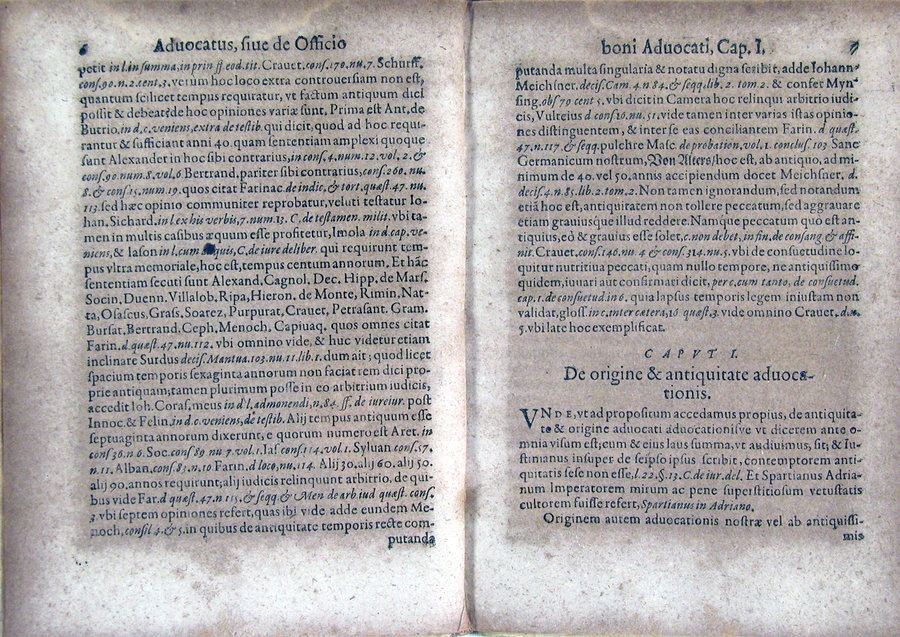 6 Advocatus, siue de Officio
petit in l. in summa, in prin ff. eod. tit. Crauet. cons. 170. nu. 7. Schurff.
cons. 90. n. 2. cent. 3. verum hoc loco extra controuersiam non est,
quantum scilicet tempus requiratur, vt factum antiquum dici
possit & debeat? de hoc opiniones variæ sunt. Prima est Ant. de
Butrio, in d. c. veniens, extra de testib. qui dicit, quod ad hoc requi-
rantur & sufficiant anni 40. quam sententiam amplexi quoque
sunt Alexander in hoc sibi contrarius, in cons. 4. num. 12. vol. 2. &
cons. 90. num. 8. vol. 6. Bertrand. pariter sibi contrarius, cons. 260. nu.
8. & cons. 15. num. 19. quos citat Farinac. de indic. & tort. quæst. 47. nu.
113. sed hæc opinio communiter reprobatur, veluti testatur Io-
han. Sichard. in l. ex his verbis, 7. num. 13. C. de testamen. milit. vbi ta-
men in multis casibus æquum esse profitetur, Imola in d. cap. ve-
niens, & Iason in l. cum quis, C. de iure deliber. qui requirunt tem-
pus vltra memoriale, hoc est, tempus centum annorum. Et hãc
sententiam secuti sunt Alexand. Cagnol. Dec. Hipp. de Mars.
Socin. Duenn. Villalob. Ripa, Hieron. de Monte, Rimin. Nat-
ta, Osascus, Grass. Soarez, Purpurat. Crauet. Petrasant. Gram.
Bursat. Bertrand. Ceph. Menoch. Capiuaq. quos omnes citat
Farin. d. quæst. 47. nu. 112. vbi omnino vide, & huc videtur etiam
inclinare Surdus decis. Mantua. 103. nu. 11. lib. 1. dum ait; quod licet
spacium temporis sexaginta annorum non faciat rem dici pro-
prie antiquam; tamen plurimum posse in eo arbitrium iudicis,
accedit Ioh. Coras. meus in d l. admonendi, n. 84. ff. de iureiur. post
Innoc. & Felin. in d. c. veniens, de testib. Alij tempus antiquum esse
septuaginta annorum dixerunt, e quorum numero est Aret. in
cons 36. n 6. Soc. cons 89 nu 7. vol. 1. Ias cons. 114. vol. 1. Syluan cons. 57.
n. 11. Alban. cons. 83. n. 10 Farin. d loco, nu. 114. Alij 30. alij 60. alij 50.
alij 90. annos requirunt; alij iudicis relinquunt arbitrio, de qui-
bus vide Far. d quæst. 47. n 115. & seqq & Men de arb iud quæst. cons.
3. vbi septem opiniones refert, quas ibi vide. adde eundem Me-
noch. consil 4. & 5. in quibus de antiquitate temporis recte com-
putanda
boni Advocati, Cap. I, 7
putanda multa singularia & notatu digna scribit, adde Iohann.
Meichsner. decis. Cam. 4. n. 84. & seqq. lib. 2. tom. 2. & confer Myn-
sing. obs 70 cent 5. vbi dicit in Camera hoc relinqui arbitrio iudi-
cis, Vulteius d cons 10. nu. 51. vide tamen inter varias istas opinio-
nes distinguentem, & inter se eas conciliantem Farin. d quæst.
47. n. 117. & seqq. pulchre Masc. de probation. vol. 1. conclus. 103 Sane
Germanicum nostrum, Von Alters, hoc est, ab antiquo, ad mi-
nimum de 40. vel 50. annis accipiendum docet Meichsner, d.
decis. 4. n. 85. lib. 2. tom. 2. Non tamen ignorandum, sed notandum
etiā hoc est, antiquitatem non tollere peccatum, sed aggrauare
etiam grauiusque illud reddere. Namque peccatum quo est an-
tiquius, eò & grauius esse solet, c. non debet, in fin. de consang & affi-
nit. Crauet. cons. 140. nu. 4 & cons. 314. nu. 5. vbi de consuetudine lo-
quitur nutritiua peccati, quam nullo tempore, ne antiquissimo
quidem, iuuari aut confirmari dicit, per c. cum tanto. de consuetud.
cap. 1. de consuetud in 6. quia lapsus temporis legem iniustam non
validat, gloss. in c. inter cætera, 16 quæst. 3. vide omnino Crauet. d. n.
5. vbi late hoc exemplificat.
CAPVT I.
De origine & antiquitate advoca-
tionis.
VNDE, vt ad propositum accedamus propius, de antiquita-
te & origine aduocati aduocationisve vt dicerem ante o-
mnia visum est; cum & eius laus summa, vt audiuimus, sit, & Iu-
stinianus insuper de seipso ipsus scribit, contemptorem anti-
quitatis sese non esse, l. 22. §. 13. C. de iur. del. Et Spartianus Adria-
num Imperatorem mirum ac pene superstitiosum vetustatis
cultorem fuisse refert, Spartianus in Adriano.
Originem autem aduocationis nostræ vel ab antiquissi-
mis